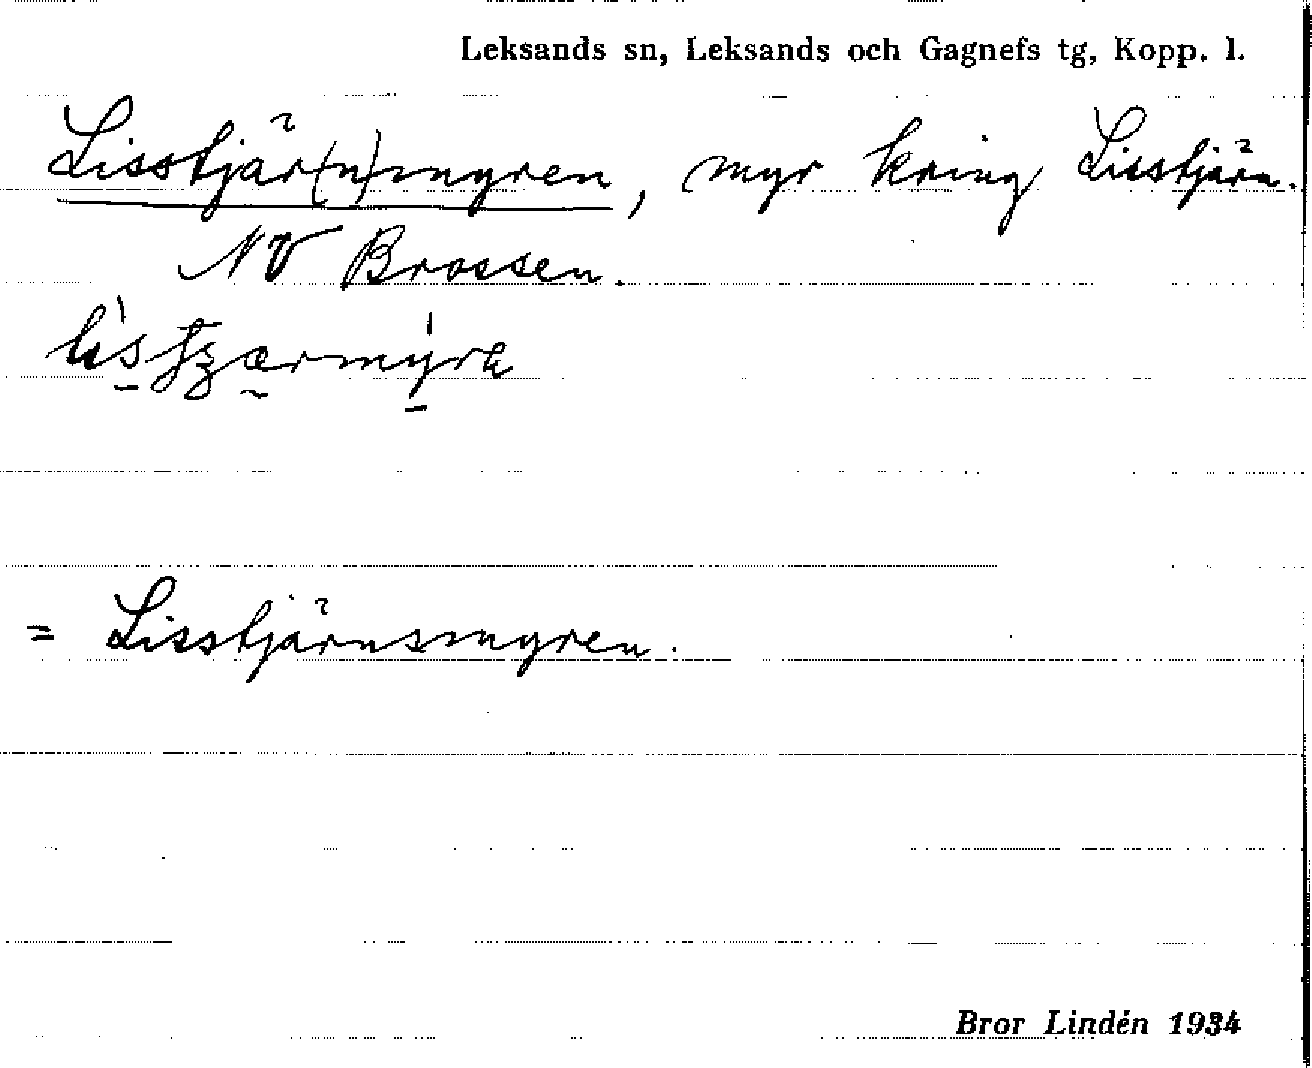 Leksands sn, Leksands och Gagnefs tg, Kopp. l.
Lisstjär(n)myren, myr kring Lisstjärn.
NV Brossen.
= Lisstjärnsmyren.
Bror Lindén 1934